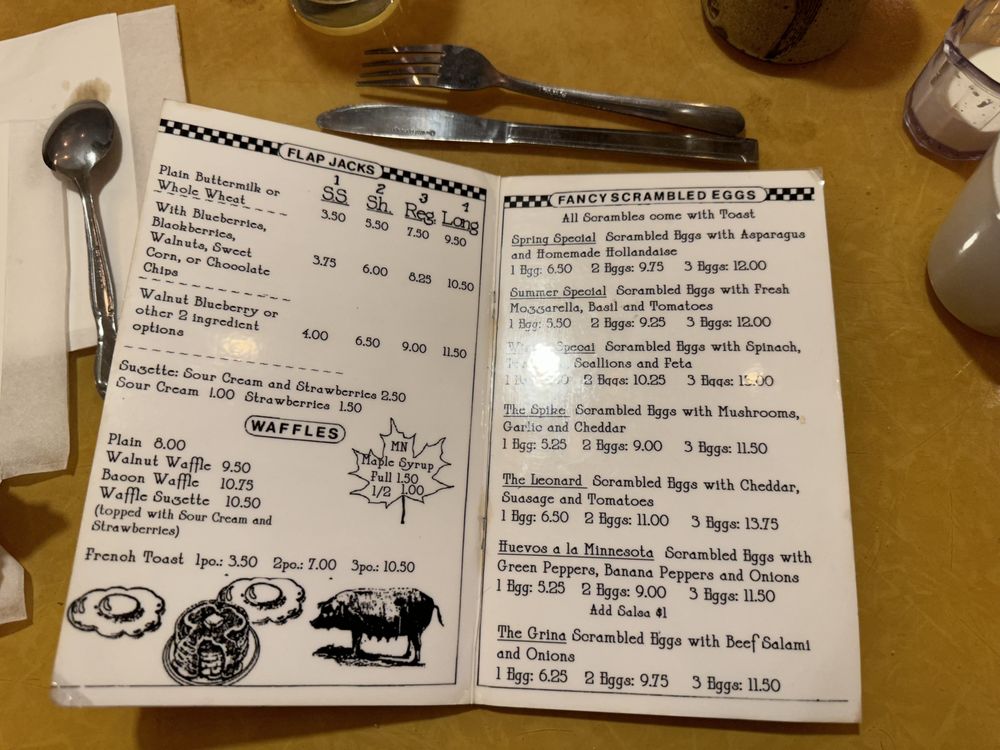 FLAP JACKS
1 2 3 4
SS. Sh. Reg. Long
Plain Buttermilk or
Whole Wheat 3.50 5.50 7.50 9.50
With Blueberries,
Blackberries,
Walnuts, Sweet
Corn, or Chocolate
Chips 3.75 6.00 8.25 10.50
Walnut Blueberry or
other 2 ingredient
options 4.00 6.50 9.00 11.50
Suzette: Sour Cream and Strawberries 2.50
Sour Cream 1.00 Strawberries 1.50
WAFFLES
Plain 8.00
Walnut Waffle 9.50
Bacon Waffle 10.75
Waffle Suzette 10.50
(topped with Sour Cream and
Strawberries)
MN
Maple Syrup
Full 1.50
1/2 1.00
French Toast 1pc.: 3.50 2pc.: 7.00 3pc.: 10.50
FANCY SCRAMBLED EGGS
All Scrambles come with Toast
Spring Special Scrambled Eggs with Asparagus
and Homemade Hollandaise
1 Egg: 6.50 2 Eggs: 9.75 3 Eggs: 12.00
Summer Special Scrambled Eggs with Fresh
Mozzarella, Basil and Tomatoes
1 Egg: 5.50 2 Eggs: 9.25 3 Eggs: 12.00
Specal Scrambled Eggs with Spinach,
Scallions and Feta
2 Eggs: 10.25 3 Eggs:
The Spike Scrambled Eggs with Mushrooms,
Garlic and Cheddar
1 Egg: 5.25 2 Eggs: 9.00 3 Eggs: 11.50
The Leonard Scrambled Eggs with Cheddar,
Suasage and Tomatoes
1 Egg: 6.50 2 Eggs: 11.00 3 Eggs: 13.75
Huevos a la Minnesota Scrambled Eggs with
Green Peppers, Banana Peppers and Onions
1 Egg: 5.25 2 Eggs: 9.00 3 Eggs: 11.50
Add Salsa $1
The Grina Scrambled Eggs with Beef Salami
and Onions
1 Egg: 6.25 2 Eggs: 9.75 3 Eggs: 11.50